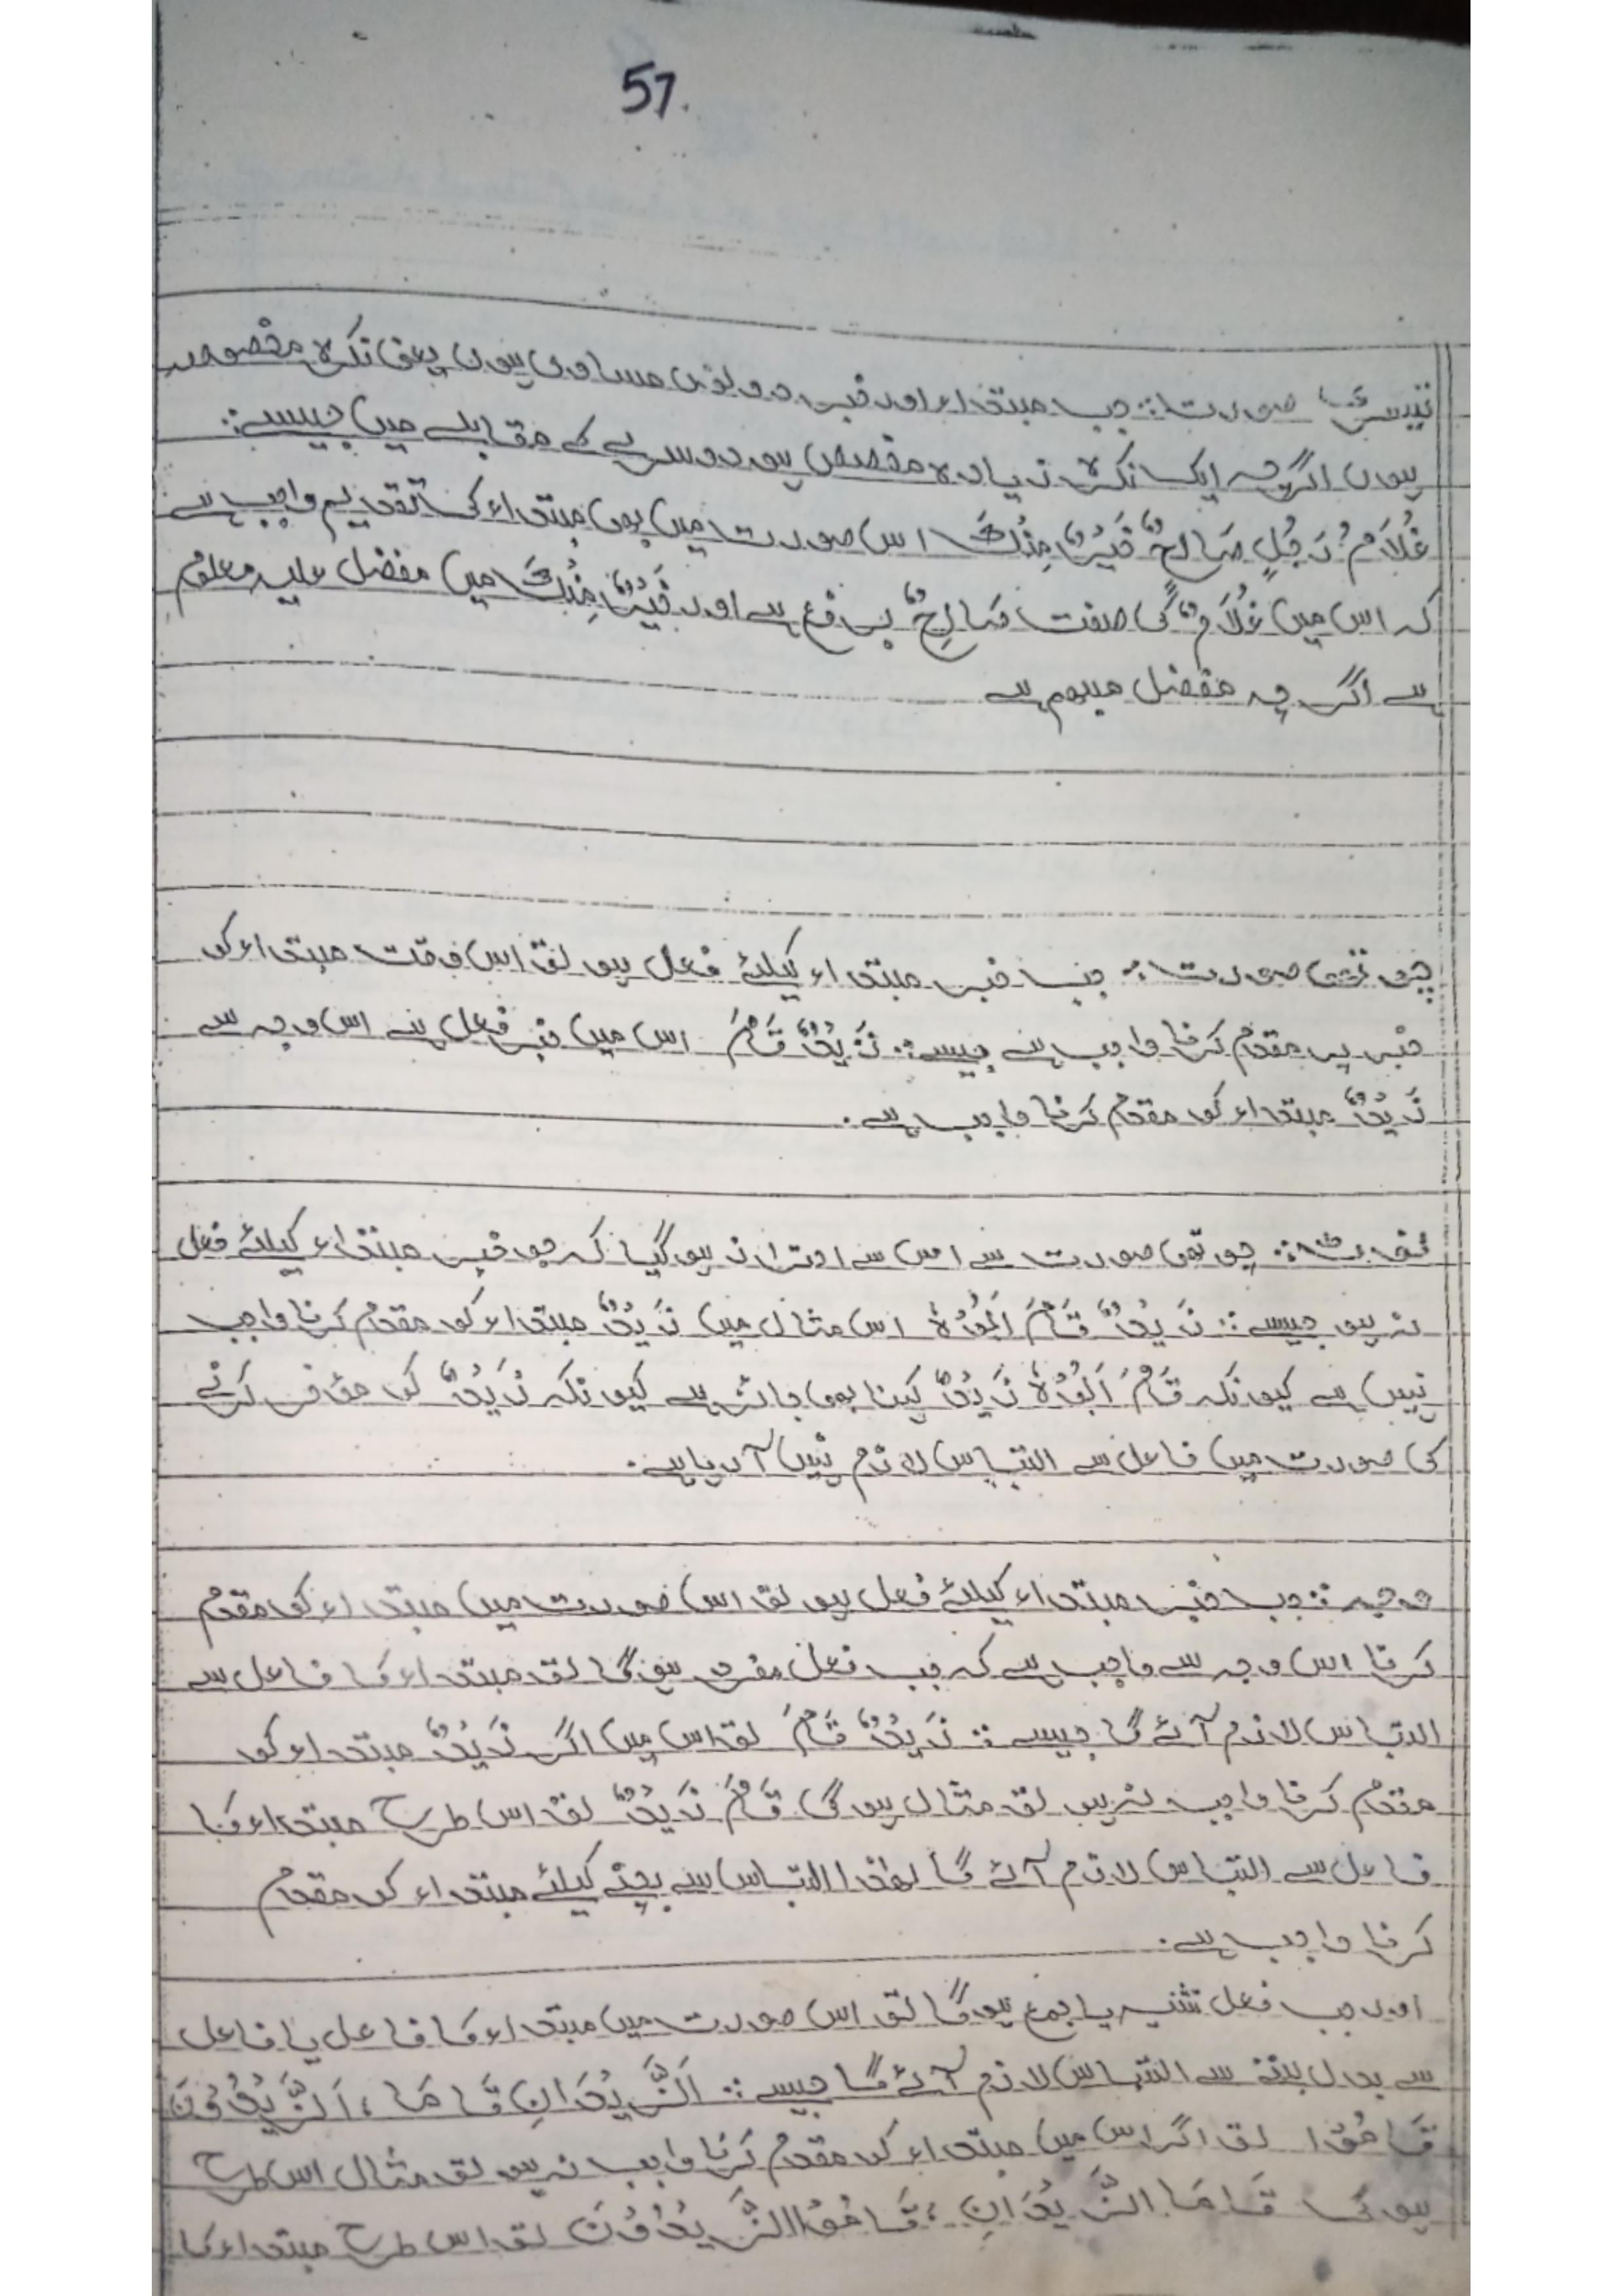 57.
تیسری صورت:: جب مبتداء اور خبر دونوں مساوی ہوں یعنی نکرہ مخصوصہ
ہوں اگرچہ ایک نکرہ زیادہ مخصص ہو دوسرے کے مقابلے میں جیسے::
غُلَامُ رَجُلٍ صَالِحٌ خَیْرٌ مِنْكَ اس صورت میں بھی مبتداء کی تقدیم واجب ہے
کہ اس میں غُلَامٌ کی صفت صَالِحٌ پر رفع ہے اور خَیْرٌ مِنْكَ میں مفضل علیہ معلوم
ہے اگرچہ مفضل مبہم ہے
چوتھی صورت:: جب خبر مبتداء کیلئے فعل ہو تو اس وقت مبتداء کو
خبر پر مقدم کرنا واجب ہے جیسے:: زَیْدٌ قَامَ اس میں خبر فعل ہے اس وجہ سے
زَیْدٌ مبتداء کو مقدم کرنا واجب ہے.
نوٹ:: چوتھی صورت سے اس سے احتراز ہو گیا کہ جو خبر مبتداء کیلئے فعل
نہ ہو جیسے:: زَیْدٌ قَامَ اَبُوْهُ اس مثال میں زَیْدٌ مبتداء کو مقدم کرنا واجب
نہیں ہے کیونکہ قَامَ اَبُوْهُ زَیْدٌ کہنا بھی جائز ہے کیونکہ زَیْدٌ کو مؤخر کرنے
کی صورت میں فاعل سے التباس لازم نہیں آ رہا ہے.
وجہ:: جب خبر مبتداء کیلئے فعل ہو تو اس صورت میں مبتداء کو مقدم
کرنا اس وجہ سے واجب ہے کہ جب فعل مفرد ہوگا تو مبتداء کا فاعل سے
التباس لازم آئے گا جیسے:: زَیْدٌ قَامَ تو اس میں اگر زَیْدٌ مبتداء کو
مقدم کرنا واجب نہ ہو تو مثال ہوگی قَامَ زَیْدٌ تو اس طرح مبتداء کا
فاعل سے التباس لازم آئے گا لہٰذا التباس سے بچنے کیلئے مبتداء کو مقدم
کرنا واجب ہے.
اور جب فعل تثنیہ یا جمع ہوگا تو اس صورت میں مبتداء کا فاعل یا فاعل
سے بدل بننے سے التباس لازم آئے گا جیسے:: اَلزَّیْدَانِ قَامَا، اَلزَّیْدُوْنَ
قَامُوْا تو اگر اس میں مبتداء کو مقدم کرنا واجب نہ ہو تو مثال اس طرح
ہوگی قَامَا الزَّیْدَانِ، قَامُوْا الزَّیْدُوْنَ تو اس طرح مبتداء کا